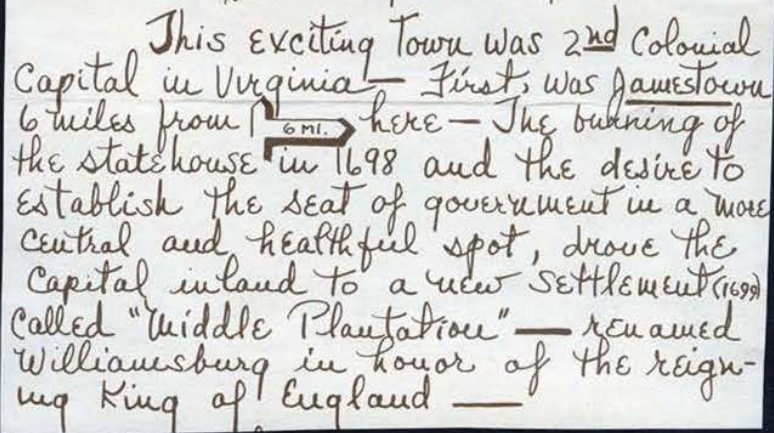 This exciting Town was 2nd Colonial
Capital in Virginia — First, was Jamestown
6 miles from 6 MI. here — The burning of
the statehouse in 1698 and the desire to
establish the seat of government in a more
central and healthful spot, drove the
Capital inland to a new settlement (1699)
called "Middle Plantation" — renamed
Williamsburg in honor of the reign-
ing King of England —